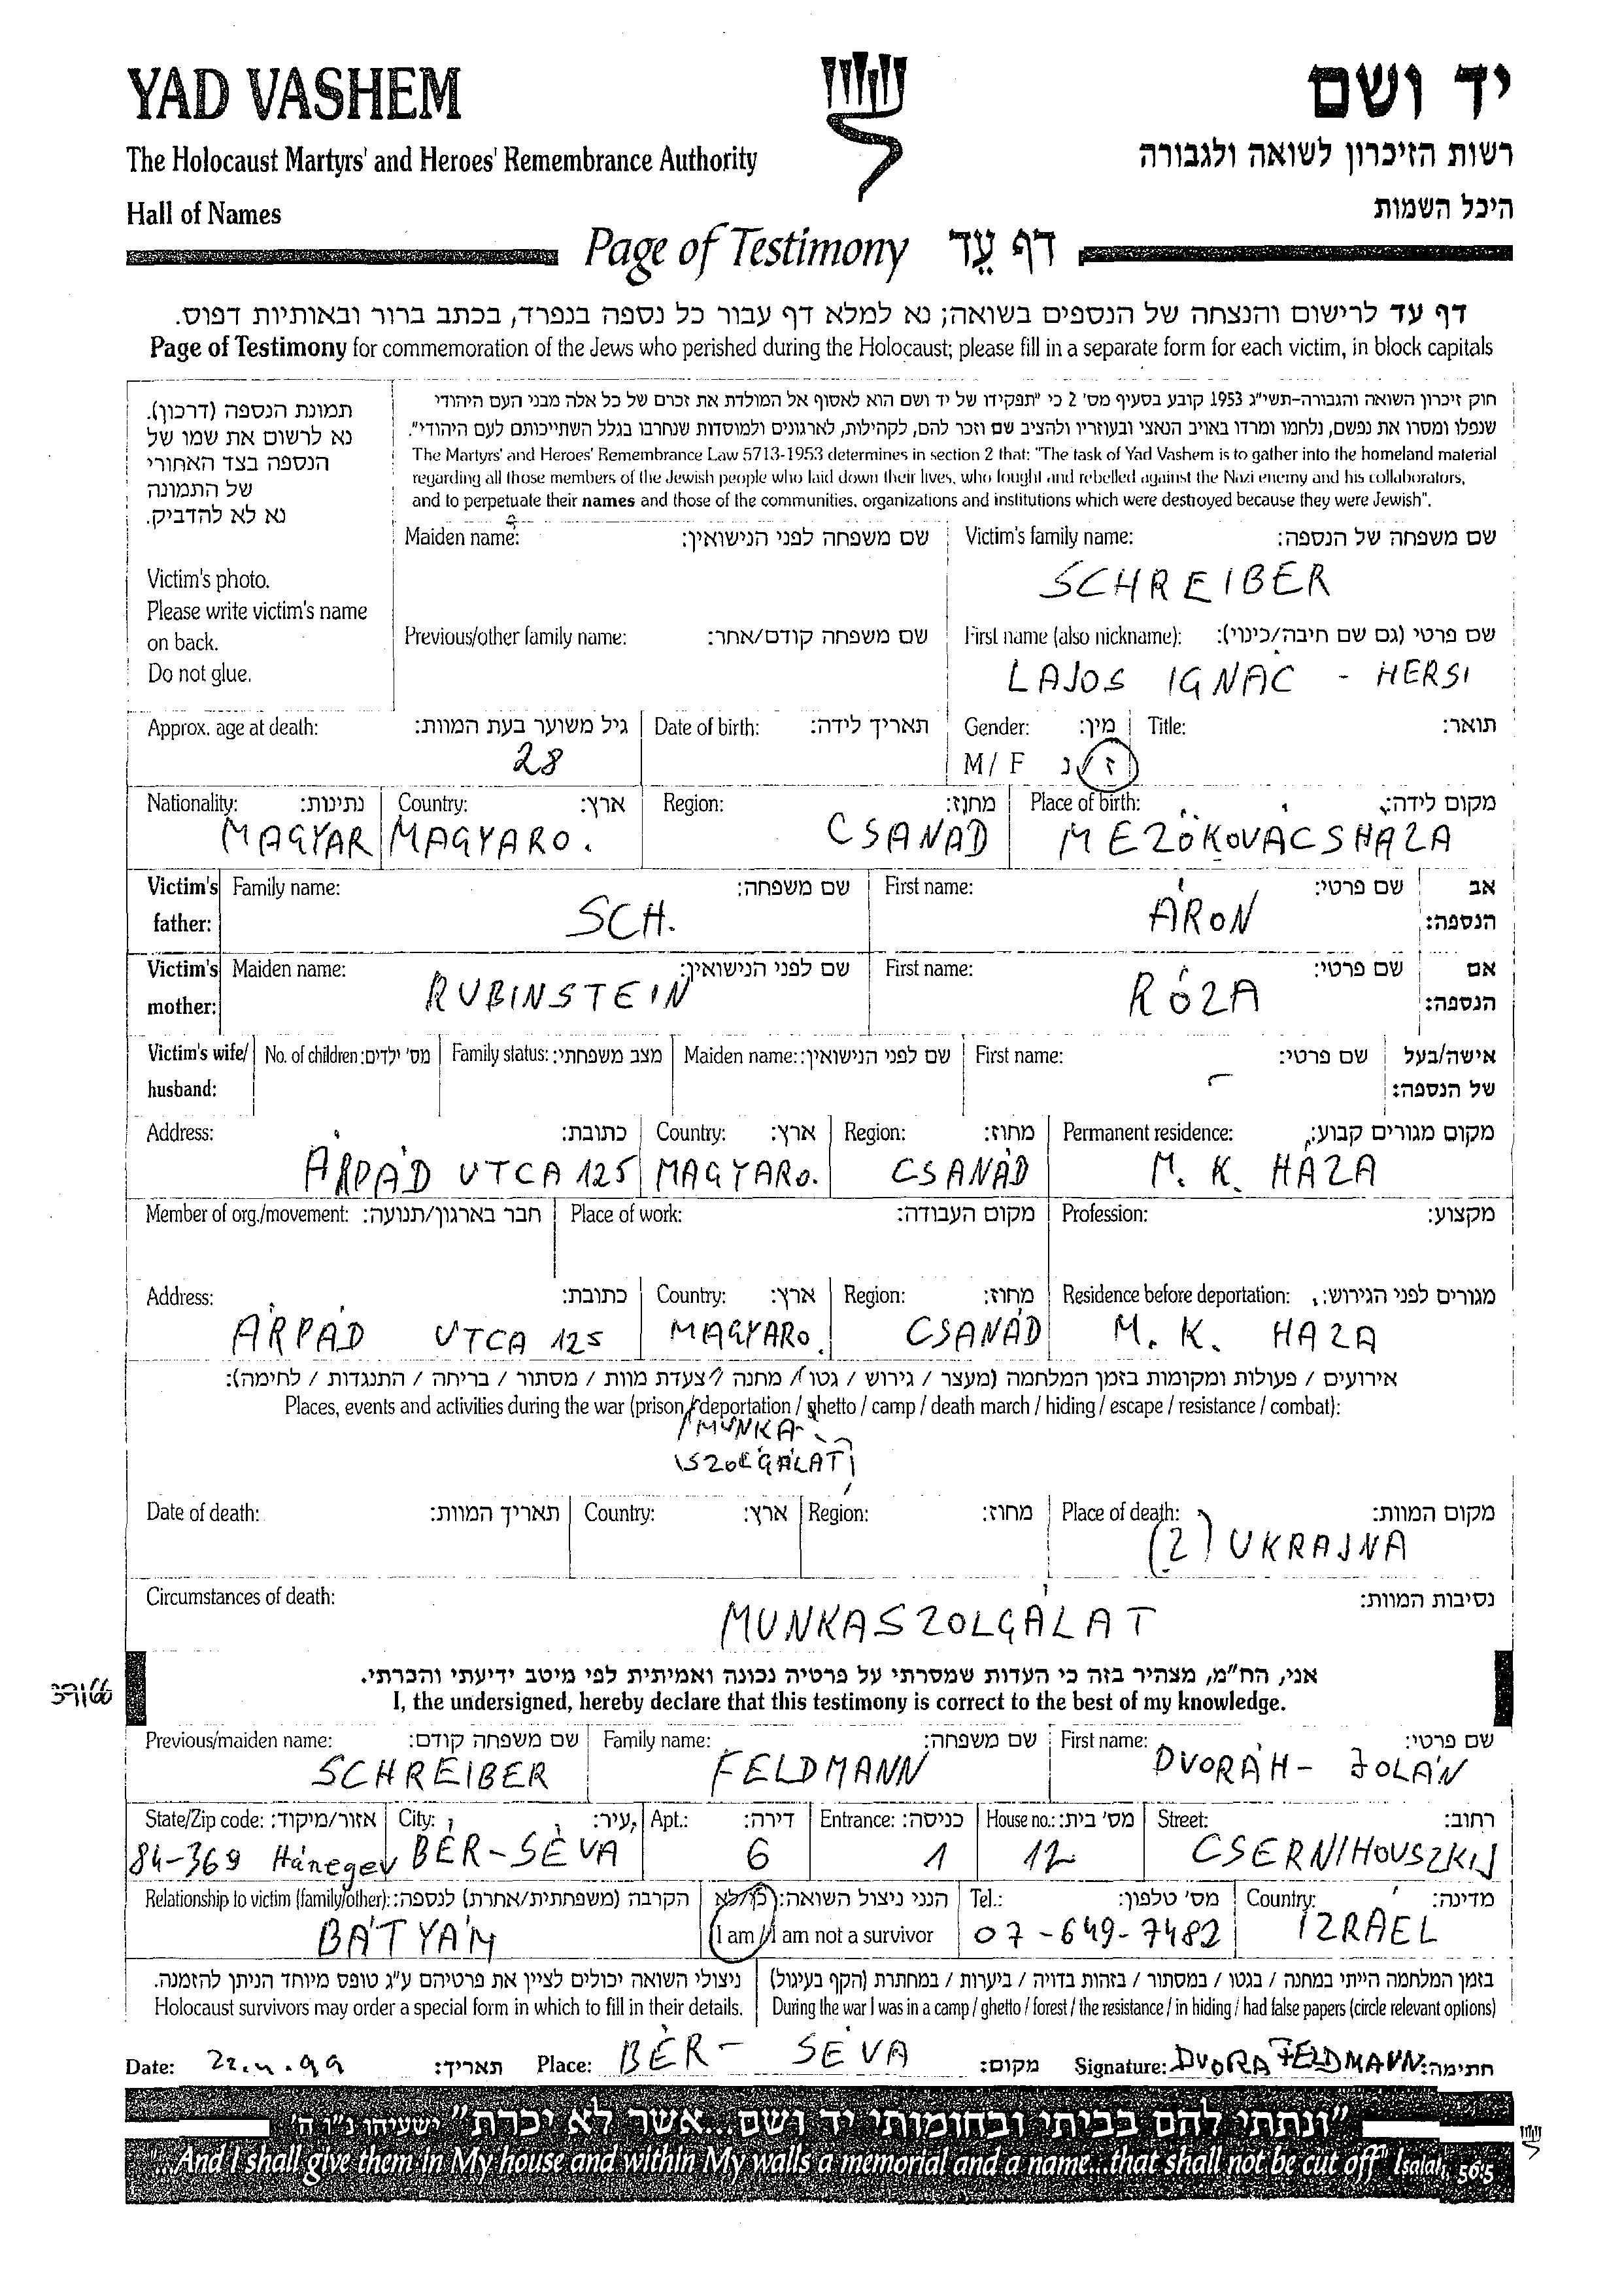 YAD VASHEM
יד ושם
The Holocaust Martyrs' and Heroes' Remembrance Authority
רשות הזיכרון לשואה ולגבורה
Hall of Names
היכל השמות
Page of Testimony דף עֵד
דף עד לרישום והנצחה של הנספים בשואה; נא למלא דף עבור כל נספה בנפרד, בכתב ברור ובאותיות דפוס.
Page of Testimony for commemoration of the Jews who perished during the Holocaust; please fill in a separate form for each victim, in block capitals
תמונת הנספה (דרכון).
נא לרשום את שמו של
הנספה בצד האחורי
של התמונה
נא לא להדביק.
Victim's photo.
Please write victim's name
on back.
Do not glue.
חוק זיכרון השואה והגבורה-תשי"ג 1953 קובע בסעיף מס' 2 כי "תפקידו של יד ושם הוא לאסוף אל המולדת את זכרם של כל אלה מבני העם היהודי
שנפלו ומסרו את נפשם, נלחמו ומרדו באויב הנאצי ובעוזריו ולהציב שם וזכר להם, לקהילות, לארגונים ולמוסדות שנחרבו בגלל השתייכותם לעם היהודי".
The Martyrs' and Heroes' Remembrance Law 5713-1953 determines in section 2 that: "The task of Yad Vashem is to gather into the homeland material
regarding all those members of the Jewish people who laid down their lives, who fought and rebelled against the Nazi enemy and his collaborators,
and to perpetuate their names and those of the communities, organizations and institutions which were destroyed because they were Jewish".
Maiden name: שם משפחה לפני הנישואין: Victim's family name: שם משפחה של הנספה:
SCHREIBER
Previous/other family name: שם משפחה קודם/אחר: First name (also nickname): שם פרטי (גם שם חיבה/כינוי):
LAJOS IGNÁC - HERSI
Approx. age at death: גיל משוער בעת המוות: Date of birth: תאריך לידה: Gender: מין: Title: תואר:
28 M / F ז / נ
Nationality: נתינות: Country: ארץ: Region: מחוז: Place of birth: מקום לידה:
MAGYAR MAGYARO. CSANAD MEZÖKOVÁCSHAZA
Victim's father: Family name: שם משפחה: First name: שם פרטי: אב הנספה:
SCH. ÁRON
Victim's mother: Maiden name: שם לפני הנישואין: First name: שם פרטי: אם הנספה:
RUBINSTEIN RÓZA
Victim's wife/ husband: No. of children: מס' ילדים: Family status: מצב משפחתי: Maiden name: שם לפני הנישואין: First name: שם פרטי: אישה/בעל של הנספה:
Address: כתובת: Country: ארץ: Region: מחוז: Permanent residence: מקום מגורים קבוע:
ÁRPÁD UTCA 125 MAGYARO. CSANÁD M. K. HÁZA
Member of org./movement: חבר בארגון/תנועה: Place of work: מקום העבודה: Profession: מקצוע:
Address: כתובת: Country: ארץ: Region: מחוז: Residence before deportation: מגורים לפני הגירוש:
ÁRPÁD UTCA 125 MAGYARO. CSANÁD M. K. HAZA
אירועים / פעולות ומקומות בזמן המלחמה (מעצר / גירוש / גטו / מחנה / צעדת מוות / מסתור / בריחה / התנגדות / לחימה):
Places, events and activities during the war (prison / deportation / ghetto / camp / death march / hiding / escape / resistance / combat):
MUNKA-
SZOLGÁLAT
Date of death: תאריך המוות: Country: ארץ: Region: מחוז: Place of death: מקום המוות:
(?) UKRAJNA
Circumstances of death: נסיבות המוות:
MUNKASZOLGÁLAT
אני, הח"מ, מצהיר בזה כי העדות שמסרתי על פרטיה נכונה ואמיתית לפי מיטב ידיעתי והכרתי.
I, the undersigned, hereby declare that this testimony is correct to the best of my knowledge.
Previous/maiden name: שם משפחה קודם: Family name: שם משפחה: First name: שם פרטי:
SCHREIBER FELDMANN DVORÁH - JOLÁN
State/Zip code: אזור/מיקוד: City: עיר: Apt.: דירה: Entrance: כניסה: House no.: מס' בית: Street: רחוב:
84-369 Hánegev BÉR-SÉVA 6 1 12 CSERNIHOUSZKIJ
Relationship to victim (family/other): הקרבה (משפחתית/אחרת) לנספה: הנני ניצול השואה: כן/לא Tel.: מס' טלפון: Country: מדינה:
BÁTYÁM I am / I am not a survivor 07-649-7482 IZRAEL
ניצולי השואה יכולים לציין את פרטיהם ע"ג טופס מיוחד הניתן להזמנה. בזמן המלחמה הייתי במחנה / בגטו / במסתור / בזהות בדויה / ביערות / במחתרת (הקף בעיגול)
Holocaust survivors may order a special form in which to fill in their details. During the war I was in a camp / ghetto / forest / the resistance / in hiding / had false papers (circle relevant options)
Date: תאריך: Place: BÉR - SÉVA מקום: Signature: DVORA FELDMANN חתימה:
"ונתתי להם בביתי ובחומותי יד ושם...אשר לא יכרת" ישעיהו נ"ו ה'
...And I shall give them in My house and within My walls a memorial and a name...that shall not be cut off Isaiah, 56:5